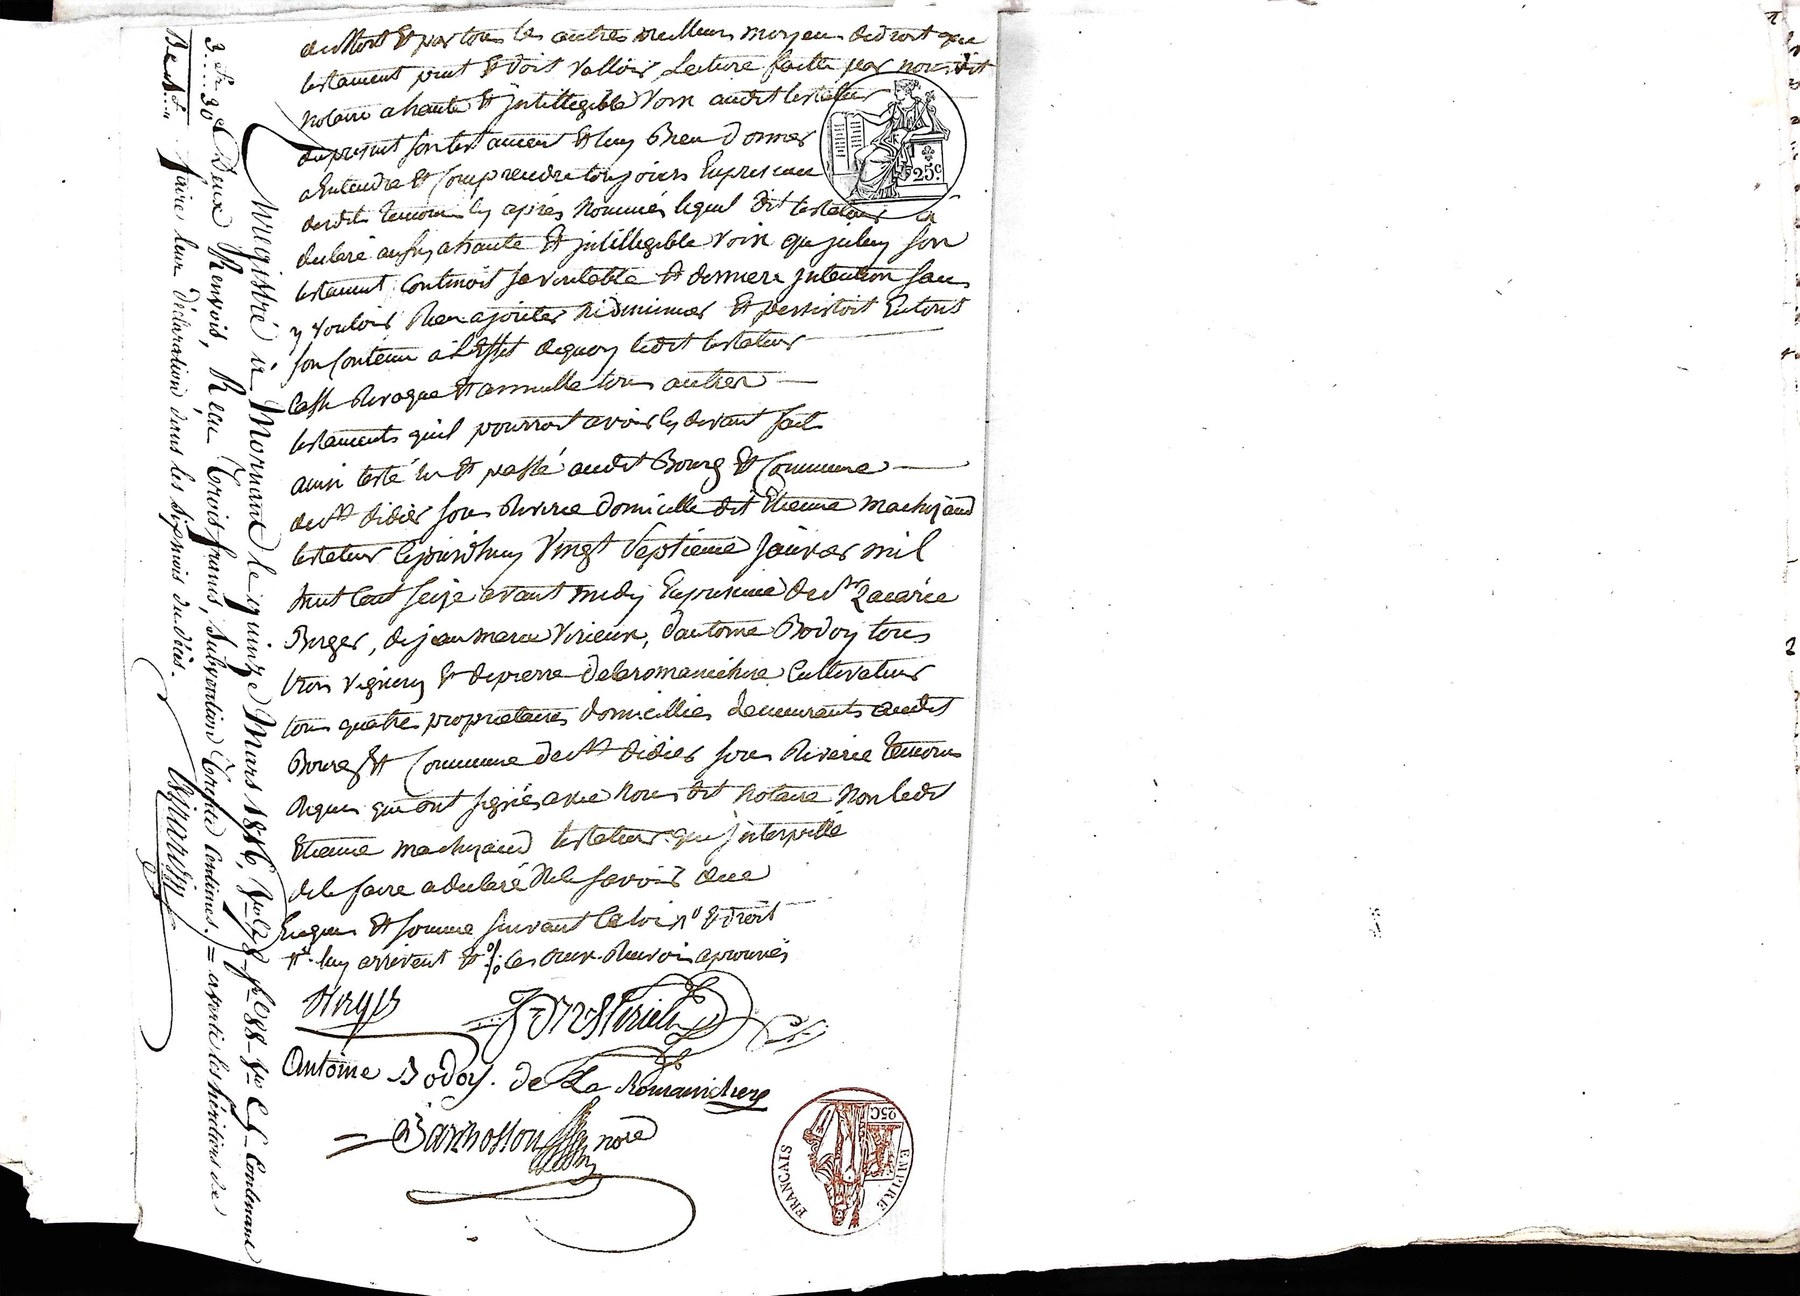 de mort et par tous les autres meilleurs moyens de droit que
testament peut et doit valloir, Lecture faitte par nous dit
notaire a haute et jntillegible voix audit testateur
du present son testament et luy Bien donner
a Entendre et Comprendre toujours En presence
desdits temoins cy après Nommés lequel dit testateur a
declaré aussy a haute et jntillegible voix que jceluy son
testament Contenoit sa veritable et derniere jntention sans
y vouloir Rien ajouter ni diminuer et persistoit En tout
son Contenu a l'Effet de quoy ledit testateur
Casse Revoque et annulle tous autres
testaments quil pourroit avoir cy devant fait
ainsi testé lu et passé audit Bourg et Commune
de st didier sous Riverie domicille dit Etienne machizaud
testateur cejourdhuy vingt septieme janvier mil
huit Cent seize avant midy En presence de sr Zacarie
Berger, de jean marie Virieux, d'antoine Bodoy tous
trois vignerons et de pierre delaromanichere Cultivateur
tous quatre proprietaires domicilliés demeurants audit
Bourg et Commune de st didier sous Riverie temoins
Requis qui ont signés avec Nous dit Notaire Non ledit
Etienne machizaud testateur que jnterpellé
de le faire a declaré Ne le savoir de ce
Enquis et sommé suivant la loi
les deux Renvois aprouvés
Antoine Bodoy. de La Romanichere
nore
25c.
EMPIRE FRANÇAIS
25C
Enregistré à Mornand le quinze Mars 1816, Contenant
Deux Renvois, Reçu Trois francs, Subvention Trente Centimes. = averti les héritiers de
faire leur déclaration dans les six mois du décès.
3.....30